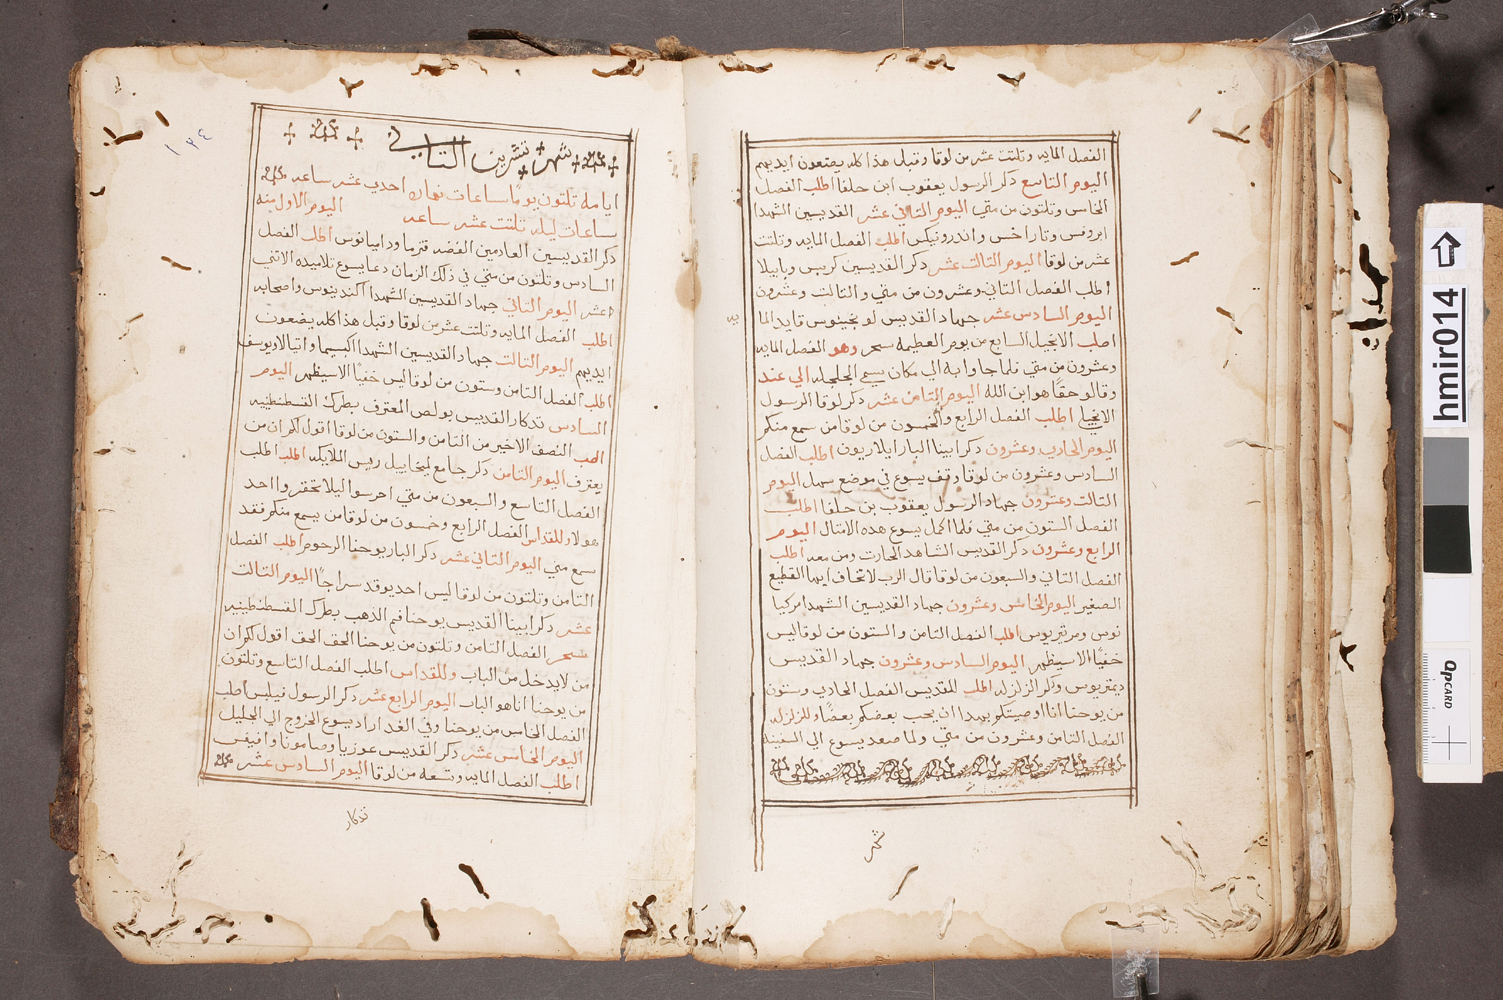 الفصل المايه وتلتت عشر من لوقا وقبل هذا كله يضعون ايديهم
اليوم التاسع ذكر الرسول يعقوب ابن حلفا اطلب الفصل
الخامس وتلتون من متي اليوم التاني عشر القديسين الشهدا
ابروفس وتاراخس واندرونيكس اطلب الفصل المايه وتلتت
عشر من لوقا اليوم التالت عشر ذكر القديسين كربس وبابيلا
اطلب الفصل التاني وعشرون من متي والتالت وعشرون
اليوم السادس عشر جهاد القديس لونجينوس قايد الما
اطلب الانجيل السابع من يوم العظيمه سحر وهو الفصل المايه
وعشرون من متي فلما جاوا به الي مكان يسمي الجلجله الي عند
وقالو حقًا هو ابن الله اليوم التامن عشر ذكر لوقا الرسول
الانجيلي اطلب الفصل الرابع والخمسون من لوقا من سمع منكم
اليوم الحادي وعشرون ذكر ابينا البار ايلاريون اطلب الفصل
السادس وعشرون من لوقا وقف يسوع في موضع سهل اليوم
التالت وعشرون جهاد الرسول يعقوب بن حلفا اطلب
الفصل الستون من متي فلما اكمل يسوع هده الامتال اليوم
الرابع وعشرون ذكر القديس الشاهد الحارت ومن معه اطلب
الفصل التاني والسبعون من لوقا قال الرب لاتخاف ايها القطيع
الصغير اليوم الخامس وعشرون جهاد القديسين الشهدا مركيا
نوس ومرتيريوس اطلب الفصل التامن والستون من لوقا ليس
خفيًا الا سيظهر اليوم السادس وعشرون جهاد القديس
ديمتريوس وذكر الزلزله اطلب للقديس الفصل الحادي وستون
من يوحنا انا اوصيتكم بهدا ان يحب بعضكم بعضًا وللزلزله
الفصل التامن وعشرون من متي ولما صعد يسوع الي السفينه
شهر
١٣٤
شهر تشرين التاني
ايامه تلتون يومًا ساعات نهاره احدي عشر ساعه
ساعات ليله تلتت عشر ساعه اليوم الاول منه
ذكر القديسين العادمين الفضه قزما وداميانوس اطلب الفصل
السادس وتلتون من متي في ذلك الزمان دعا يسوع تلاميده الاتني
عشر اليوم التاني جهاد القديسين الشهدا اكندينوس واصحابه
اطلب الفصل المايه وتلتت عشر من لوقا وقبل هذا كله يضعون
ايديهم اليوم التالت جهاد القديسين الشهدا اكبسيما واتيالا ويوسف
اطلب الفصل التامن وستون من لوقا ليس خفيًا الا سيظهر اليوم
السادس تدكار القديس بولص المعترف بطرك القسطنطينيه
اطلب النصف الاخير من التامن والستون من لوقا اقول لكم ان من
يعترف اليوم التامن ذكر جامع لميخاييل ريس الملايكه اطلب اطلب
الفصل التاسع والسبعون من متي احرسوا ليلا تحقروا احد
هولا وللقداس الفصل الرابع وخمسون من لوقا من يسمع منكم فقد
سمع مني اليوم التاني عشر ذكر البار يوحنا الرحوم اطلب الفصل
التامن وتلتون من لوقا ليس احد يوقد سراجًا اليوم التالت
عشر ذكر ابينا القديس يوحنا فم الدهب بطرك القسطنطينيه
سحر الفصل التامن وتلتون من يوحنا الحق الحق اقول لكم ان
من لايدخل من الباب وللقداس اطلب الفصل التاسع وتلتون
من يوحنا انا هو الباب اليوم الرابع عشر ذكر الرسول فيلبس اطلب
الفصل الخامس من يوحنا وفي الغد اراد يسوع الخروج الي الجليل
اليوم الخامس عشر ذكر القديس عوزيا وصامونا وافيفس
اطلب الفصل المايه وتسعه من لوقا اليوم السادس عشر
تدكار
hmir014
QPCARD